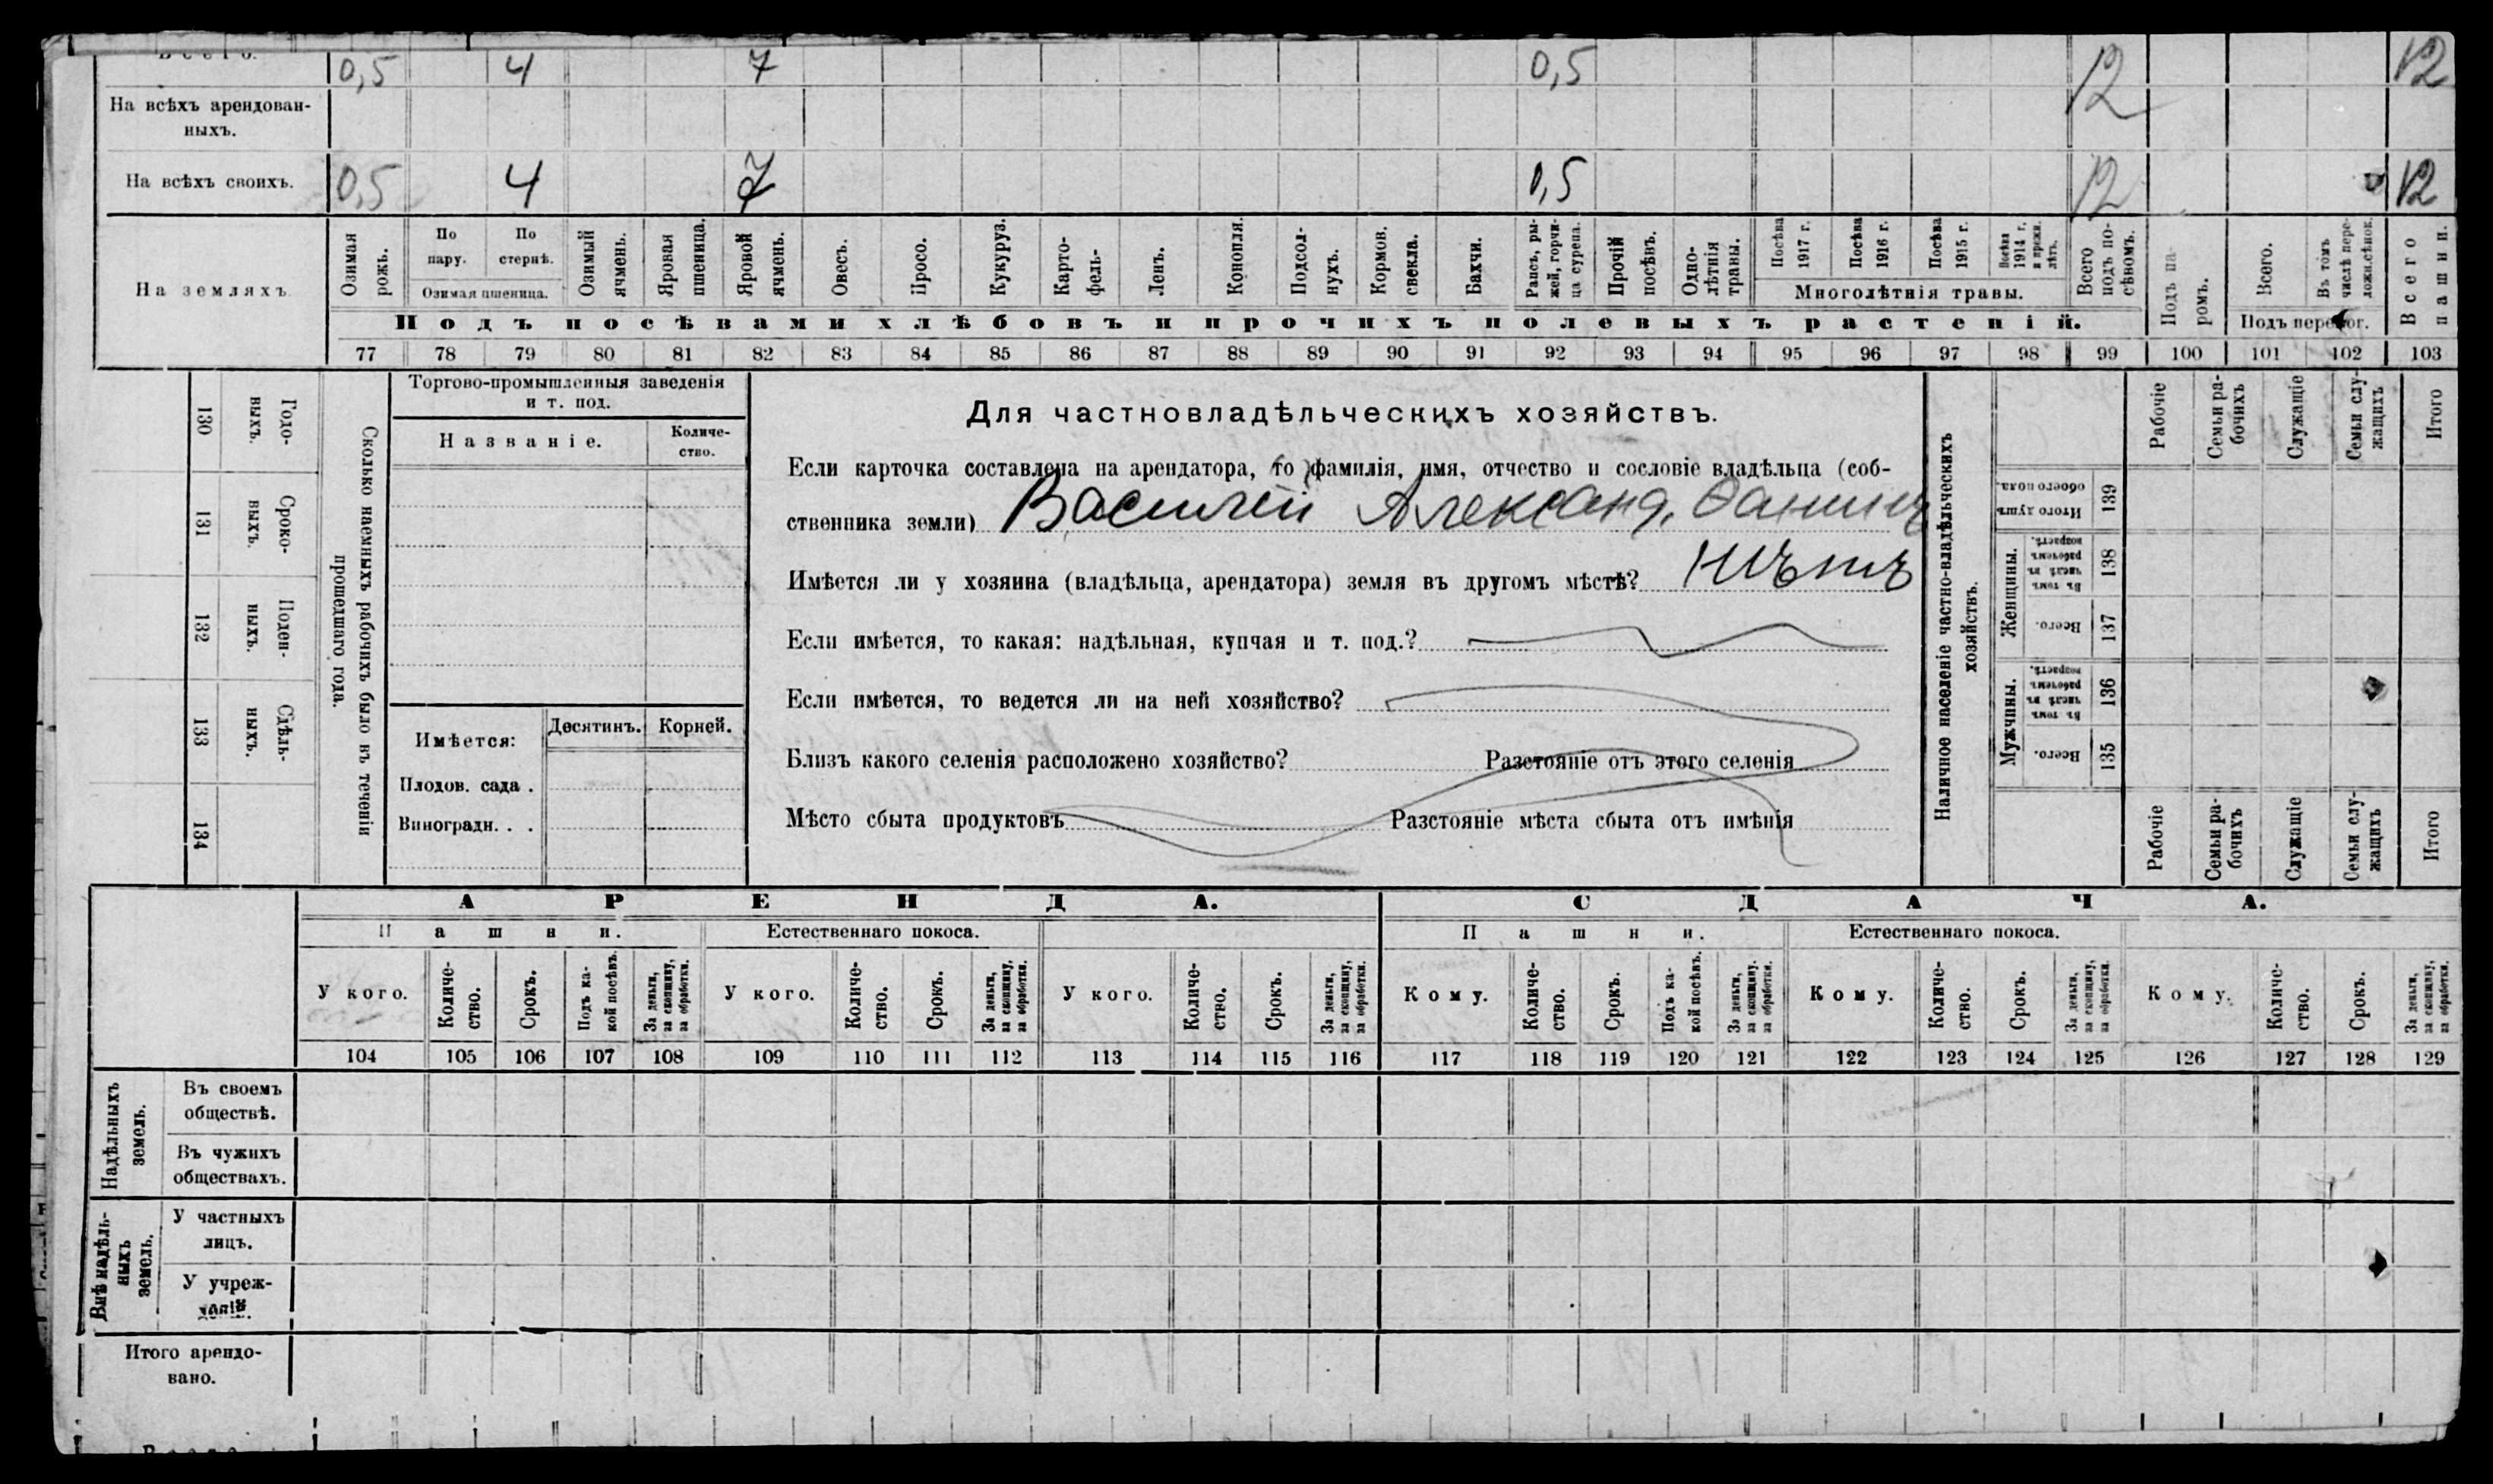 Всего. 0,5 4 7 0,5 12 12
На всѣхъ арендован-
ныхъ.
На всѣхъ своихъ. 0,5 4 7 0,5 12 12
На земляхъ
Озимая рожь.
По пару.
По стернѣ.
Озимая пшеница.
Озимый ячмень.
Яровая пшеница.
Яровой ячмень.
Овесъ.
Просо.
Кукуруз.
Карто-
фель.
Ленъ.
Конопля.
Подсол-
нухъ.
Кормов.
свекла.
Бахчи.
Рапсъ, ры-
жей, горчи-
ца сурепа.
Прочій
посѣвъ.
Одно-
лѣтнія
травы.
Посѣва
1917 г.
Посѣва
1916 г.
Посѣва
1915 г.
Посѣва
1914 г.
и прежн.
лѣтъ.
Многолѣтнія травы.
Всего
подъ по-
сѣвомъ.
Подъ па-
ромъ.
Всего.
Въ томъ
числѣ пере-
ложн.сѣнок.
Подъ перелог.
Всего
пашни.
Подъ посѣвами хлѣбовъ и прочихъ полевыхъ растеній.
77 78 79 80 81 82 83 84 85 86 87 88 89 90 91 92 93 94 95 96 97 98 99 100 101 102 103
130 Годо-
выхъ.
131 Сроко-
выхъ.
132 Поден-
ныхъ.
133 Сдѣль-
ныхъ.
134
Сколько наемныхъ рабочихъ было въ теченіи
прошедшаго года.
Торгово-промышленныя заведенія
и т. под.
Названіе.
Количе-
ство.
Имѣется:
Десятинъ.
Корней.
Плодов. сада .
Виноградн. . .
Для частновладѣльческихъ хозяйствъ.
Если карточка составлена на арендатора, то фамилія, имя, отчество и сословіе владѣльца (соб-
ственника земли) Василій Александ.
Имѣется ли у хозяина (владѣльца, арендатора) земля въ другомъ мѣстѣ? нѣтъ
Если имѣется, то какая: надѣльная, купчая и т. под.?
Если имѣется, то ведется ли на ней хозяйство?
Близъ какого селенія расположено хозяйство? Разстояніе отъ этого селенія
Мѣсто сбыта продуктовъ Разстояніе мѣста сбыта отъ имѣнія
Наличное населеніе частно-владѣльческихъ
хозяйствъ.
Рабочіе
Семьи ра-
бочихъ
Служащіе
Семьи слу-
жащихъ
Итого
Итого душъ
обоего пола.
139
Женщины.
Въ томъ
числѣ въ
рабочемъ
возрастѣ.
138
Всего.
137
Мужчины.
Въ томъ
числѣ въ
рабочемъ
возрастѣ.
136
Всего.
135
Рабочіе
Семьи ра-
бочихъ
Служащіе
Семьи слу-
жащихъ
Итого
АРЕНДА. СДАЧА.
Пашни. Естественнаго покоса. Пашни. Естественнаго покоса.
У кого.
Количе-
ство.
Срокъ.
Подъ ка-
кой посѣвъ.
За деньги,
за скопщину,
за обработки.
У кого.
Количе-
ство.
Срокъ.
За деньги,
за скопщину,
за обработки.
У кого.
Количе-
ство.
Срокъ.
За деньги,
за скопщину,
за обработки.
Кому.
Количе-
ство.
Срокъ.
Подъ ка-
кой посѣвъ.
За деньги,
за скопщину.
за обработки.
Кому.
Количе-
ство.
Срокъ.
За деньги,
за скопщину,
за обработки.
Кому.
Количе-
ство.
Срокъ.
За деньги,
за скопщину,
за обработки.
104 105 106 107 108 109 110 111 112 113 114 115 116 117 118 119 120 121 122 123 124 125 126 127 128 129
Надѣльныхъ
земель.
Въ своемъ
обществѣ.
Въ чужихъ
обществахъ.
Внѣ надѣль-
ныхъ
земель.
У частныхъ
лицъ.
У учреж-
деній.
Итого арендо-
вано.